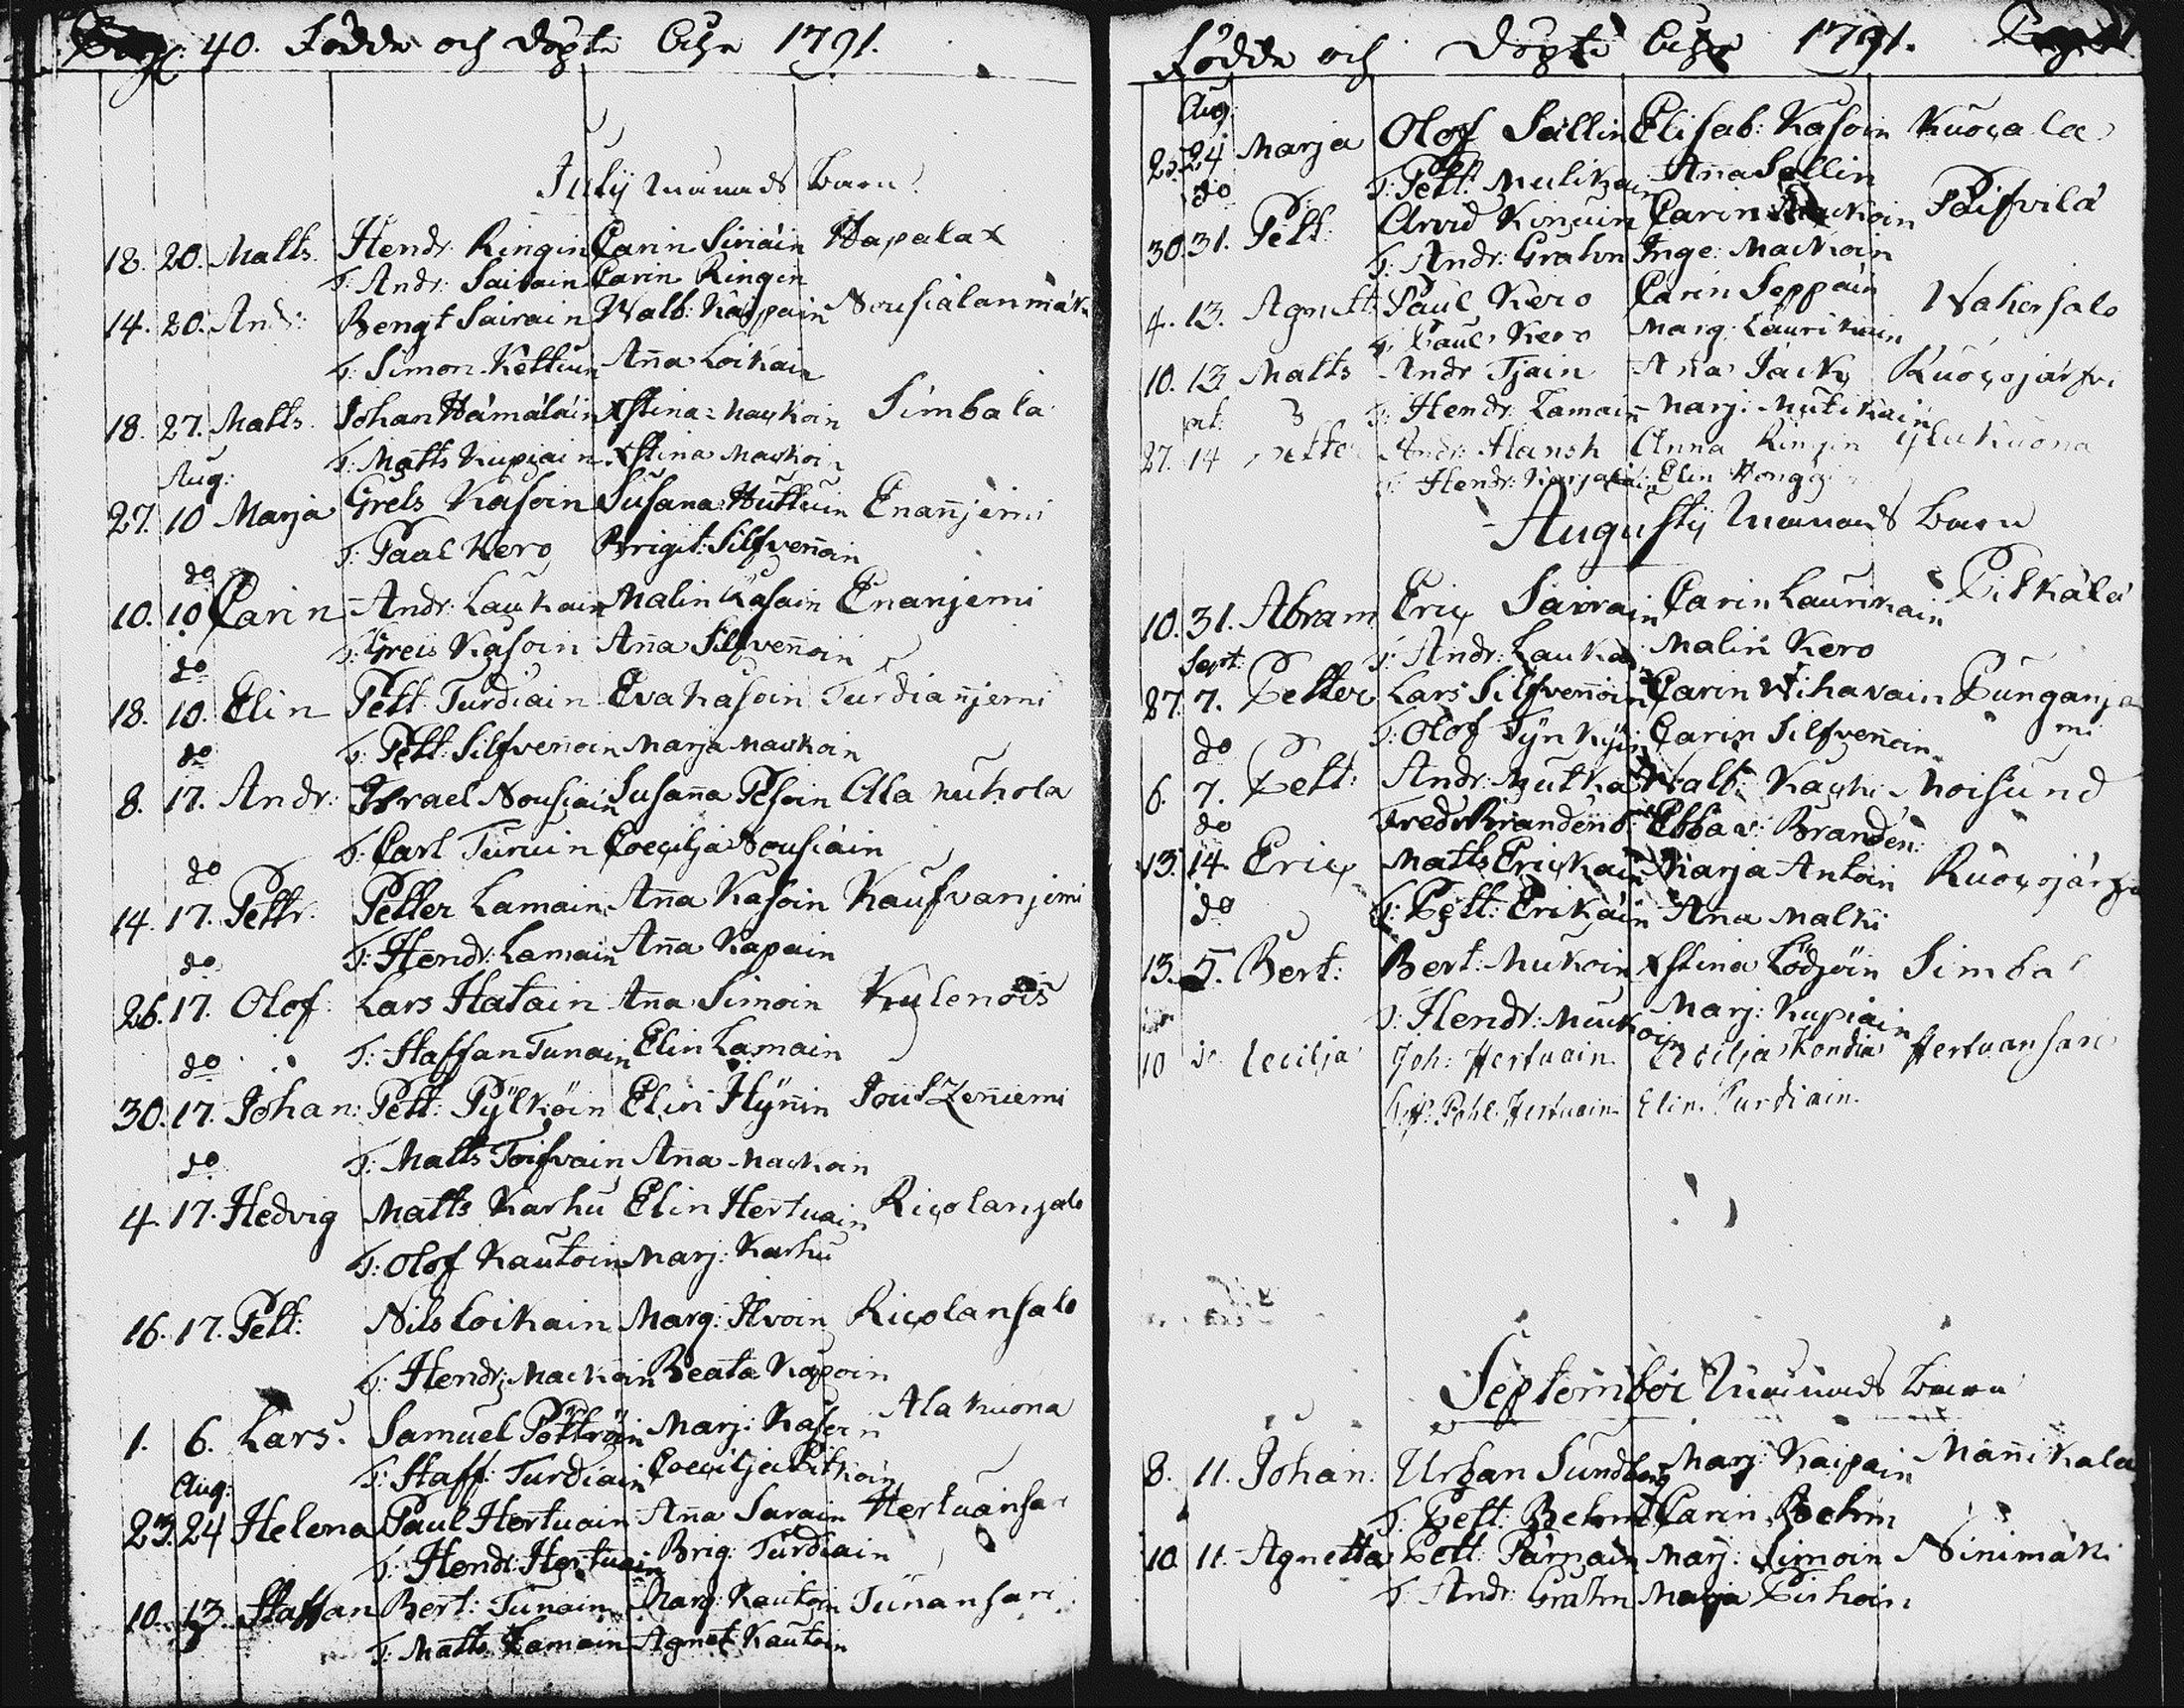 40. Födde och döpte Åhr 1791.
July Månads Barn
18. 20. Matts. Hendr. Ringin Carin Siriäin Hapalax
T: Andr: Sairain Carin Ringin
14. 20. Andr: Bengt Sairain Walb: Kaipain Nousialanmäki
T: Simon Kettuin Aña Loikain
18. 27. Matts. Johan Hämäläin Xstina Mackoin Simbala
T: Matts Kupiain Xstina Mackoin
Aug:
27. 10 Marja Grels Kasoin Susana Huttuin Enañjemi
T: Paul Kero Brigit: Silfveñoin
do
10. 10 Carin Andr: Laukain Malin Kasoin Enanjemi
T: Greis Kasoin Aña Silfveñoin
do
18. 10. Elin Pett: Turdiain Eva Kasoin Turdiañjemi
T: Pett: Silfveñoin Marja Mackoin
do
8. 17. Andr: Israel Nousiain Susaña Pesoin Ala kuhola
T: Carl Turuin Coecilja Nousiäin
do
14. 17. Pettr. Petter Lamain Aña Kasoin Kaufvanjemi
T: Hendr: Lamain Aña Kapain
do
26. 17. Olof Lars Hatain Aña Simoin Kulenois
T: Staffan Tunain Elin Lamain
do
30. 17. Johan: Pett: Pÿlköin Elin Hÿñin Joutzeñiemi
T: Matts Toifvain Aña Mackoin
do
4. 17. Hedvig Matts Karhu Elin Hertuain Ricolanjalo
T: Olof Kautoin Marj: Karhu
16. 17. Pett: Nils Loikain Marg: Ilvoin Ricolansalo
T: Hendr: Mackoin Beata Kapoin
1. 6. Lars. Samuel Pöttröin Marj: Kasoin Ala kuona
T: Staff: Turdiain Coecilja Pitkäin
Aug:
23. 24 Helena Paul Hertuain Aña Sarain Hertuainsar
T: Hendr: Hertuain Brig: Turdiain
10. 13. Staffan Bert: Tunain Marg: Kautoin Tunansari
T: Matts Lamain Agnet: Kautoin
Födde och Döpte Åhr 1791.
Aug:
23. 24 Marja Olof Sällin Elisab: Kasoin Kuocala
T: Pett: Mulikain Aña Sellin
do
30. 31. Pett: Arvid Kinuin Carin Mackoin Päifvilä
T: Andr: Grahn Inge: Mackoin
4. 13. Agnet: Paul Kero Carin Seppäin Wahersalo
T: Paul Kero Marg: Laurikain
10. 13 Matts Andr Tjain Aña Jack Kuocojärfvi
T: Hendr: Lamain Marj: Mutikain
27. 14 Petter Andr: Hansk Anna Ringin Alakuona
T: Hendr: Karjalain Elin Hongo
Augusty Månads Barn
10. 31. Abram Eric Sairain Carin Laurikain Pitkälä
T: Andr: Laukai Malin Kero
Sept:
27. 7. Petter Lars Silfveñoin Carin Wihavain Punganja
mi
T: Olof Tÿnkÿin Carin Silfveñoin
do
6. 7. Pett: Andr: Mutka Walb: Kacki Moisund
Fredr Brandend: Ebba v: Branden:
do
13. 14 Eric Matts Erickain Marja Antoin Kuocojärfvi
T: Pett: Erikäin Aña Malki
do
13. 5. Bert: Bert: Mukoin Xstina Lödjöin Simbal
T: Hendr: Muckoin Marj: Kupiain
10 Cecilja Joh: Hertuain Cecilja Kondia Hertuansari
Pohl. Hertuain Elin Turdiain
September Månads Barn
8. 11. Johan: Urban Sundberg Marj: Kaipain Mañikala
T: Pett: Behm Carin Behm
10 11. Agnetta Pett: Pärnäin Marj: Simoin Ninimäki
T: Andr: Grahn Marja Pirhoin